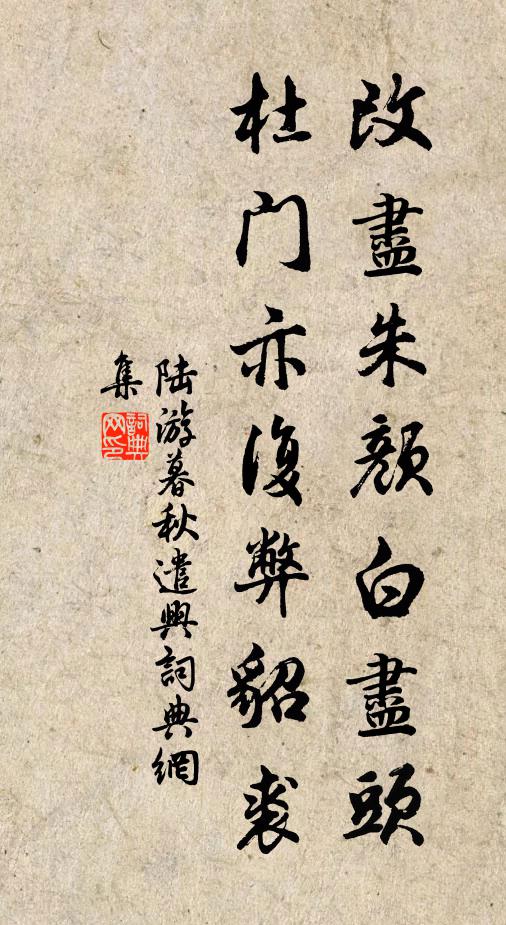 改盡朱顏白盡頭
杜門亦復弊貂裘
陸游暮秋遣興詞典網
集
詞典
网印